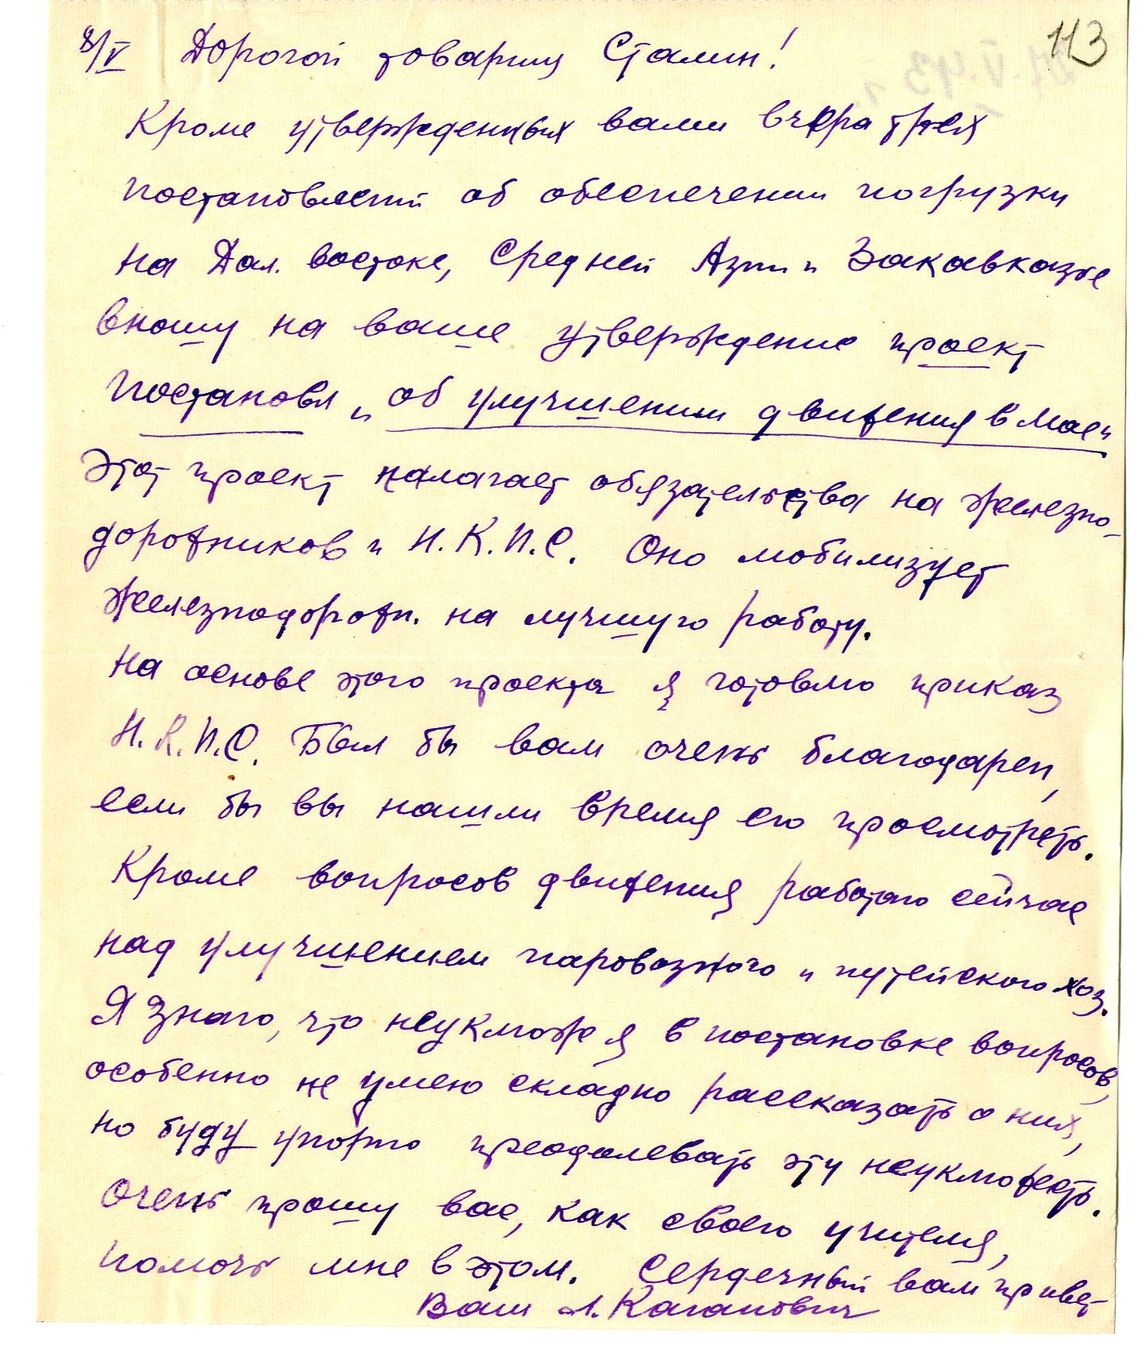 113
8/V Дорогой товарищ Сталин!
Кроме утвержденных вами вчера трех
постановлений об обеспечении погрузки
на Дал. востоке, Средней Азии и Закавказье
вношу на ваше утверждение проект
Постановл „об улучшении движения в мае"
Этот проект налагает обязательства на железно-
дорожников и Н.К.П.С. Оно мобилизует
железнодорожн. на лучшую работу.
На основе этого проекта я готовлю приказ
Н.К.П.С. Был бы вам очень благодарен,
если бы вы нашли время его просмотреть.
Кроме вопросов движения работаю сейчас
над улучшением паровозного и путейского хоз.
Я знаю, что неуклюж я в постановке вопросов,
особенно не умею складно рассказать о них,
но буду упорно преодолевать эту неуклюжесть.
Очень прошу вас, как своего учителя,
помочь мне в этом. Сердечный вам привет
Ваш Л. Каганович